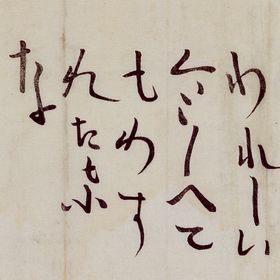 われしい
くしへて
もわす
れたまふ
な